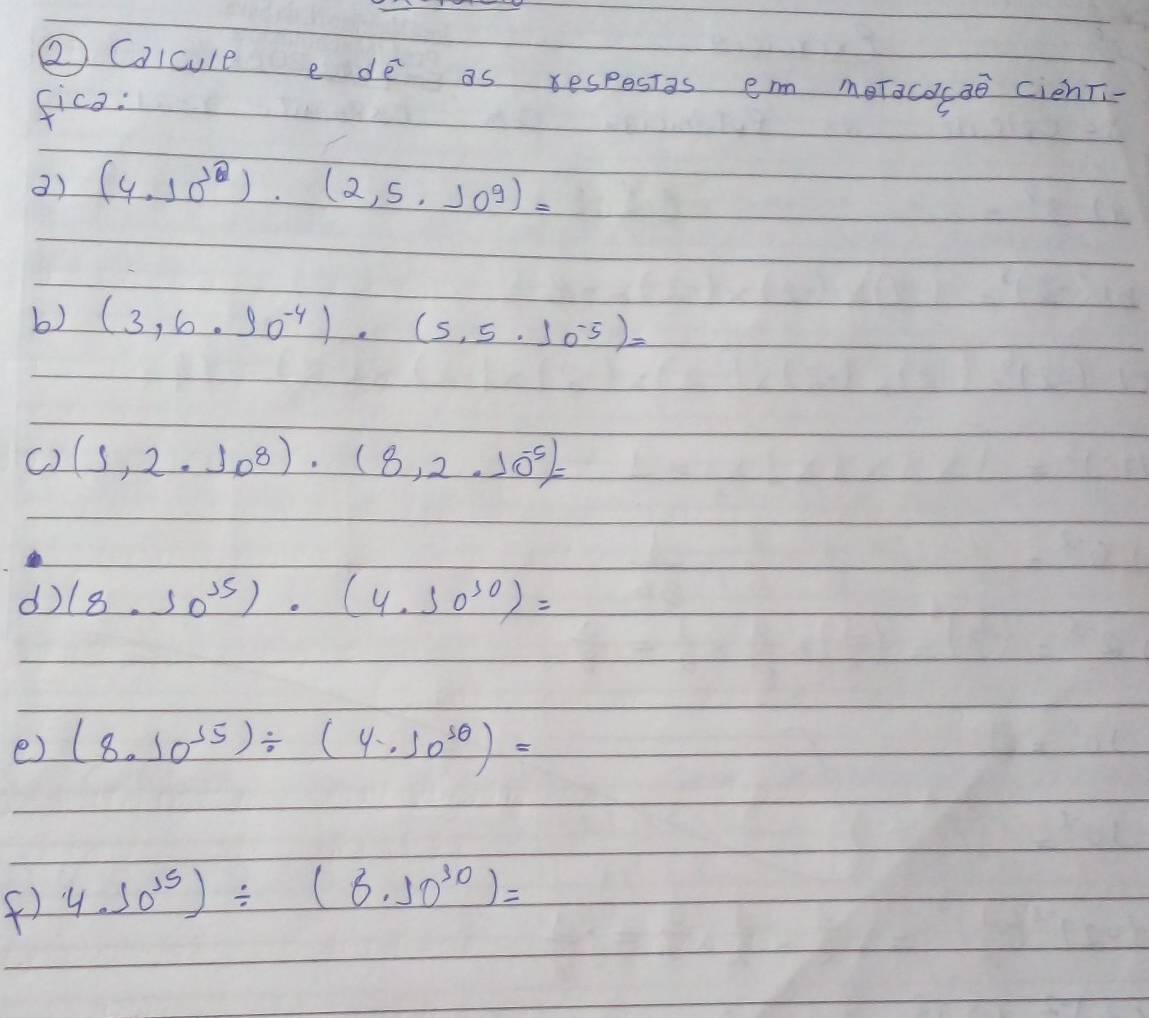 ② Calcule e dê as respostas em notacação ciênti-
fica:
a) (4.10¹⁰) . (2,5 . 10⁹) =
b) (3,6 . 10⁻⁴) . (5,5 . 10⁻⁵) =
c) (1,2 . 10⁸) . (8,2 . 10⁻⁵) =
d) (8 . 10¹⁵) . (4 . 10¹⁰) =
e) (8 . 10¹⁵) ÷ (4 . 10¹⁰) =
f) 4 . 10¹⁵) ÷ (8 . 10¹⁰) =